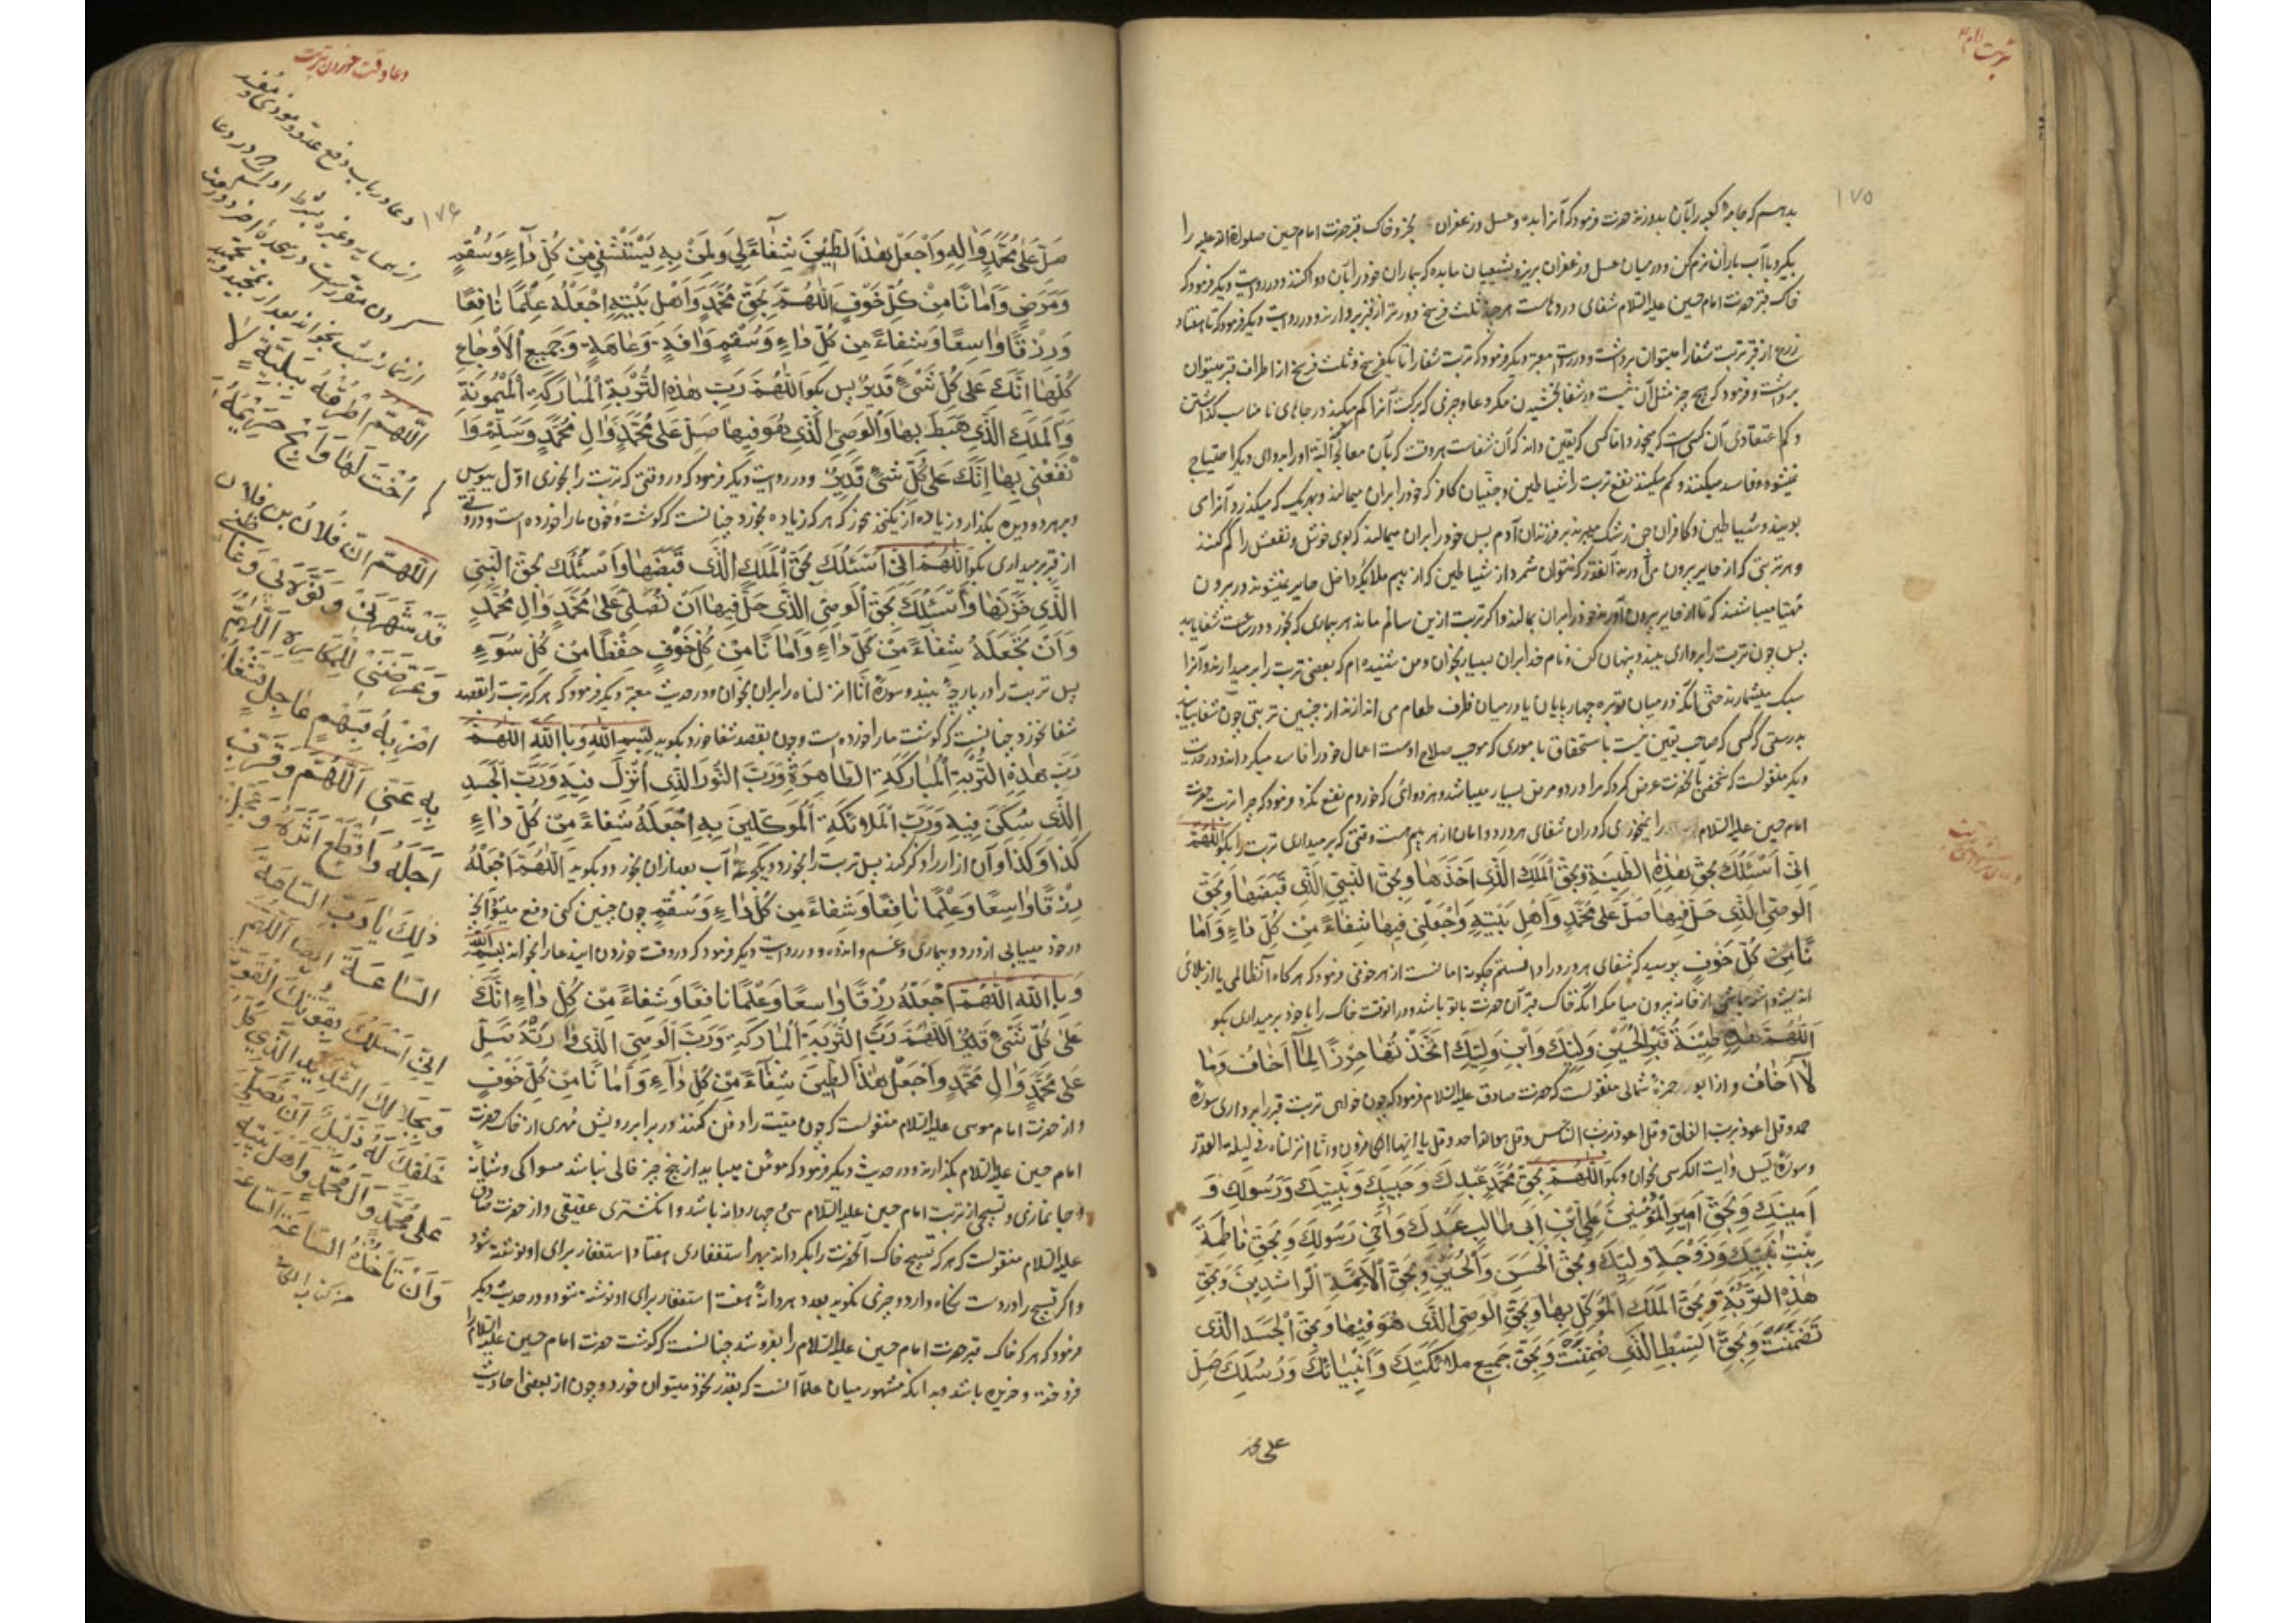 تربت امام
۱۷۵
بدهم که جامهٔ کعبه را بآن بدوزند حضرت فرمود که آنرا بده و عسل و زعفران بخر و خاک قبر حضرت امام حسین صلوات الله علیه را
بگیر و بآب باران نرم کن و در میان عسل و زعفران بریز و بشیعیان ما بده که بیماران خود را بآن دوا کنند و در روایت دیگر فرمود که
خاک قبر حضرت امام حسین علیه السلام شفای دردهاست هر چند ثلث فرسخ دورتر از قبر بردارند و در روایت دیگر فرمود که تا هفتاد
زرع از قبر تربت شفا را میتوان برداشت و در روایت معتبر دیگر فرمود که تربت شفا را تا یکفرسخ و ثلث فرسخ از اطراف قبر میتوان
برداشت و فرمود که هیچ چیز مثل آن نیست در شفا بخشیدن مگر دعا و چیزی که برکت آنرا کم میکند در جاهای نامناسب گذاشتن
و کم اعتقادی آن کسی است که میخورد اما کسی که یقین داند که آن شفاست هر وقت که بآن معالجه کند البته او را بدوای دیگر احتیاج
نمیشود و فاسد میکنند و کم میکنند نفع تربت را شیاطین و جنیان کافر که خود را بر آن میمالند و بهر یک که میگذرد آنرا می
بویند و شیاطین و کافران جن رشک میبرند بر فرزندان آدم پس خود را بر آن میمالند که بوی خوش و نفعش را کم کنند
و هر تربتی که از حایر بیرون می آورند آنقدر که نتوان شمرد از شیاطین که از بیم ملائکه داخل حایر نمیشوند در بیرون
مهیا میباشند که تا از حایر بیرون آورند خود را بر آن بمالند و اگر تربت ازین سالم ماند هر بیماری که بخورد در ساعت شفا یابد
پس چون تربت را برداری ببند و پنهان کن و نام خدا بر آن بسیار بخوان و من شنیده ام که بعضی تربت را بر میدارند و آنرا
سبک میشمارند حتی آنکه در میان توبره چهارپایان یا در میان ظرف طعام می اندازند از چنین تربتی چون شفا بیابند
بدرستی که کسی که صاحب یقین نیست باستخفاف باموری که موجب صلاح اوست اعمال خود را فاسد میگرداند و در حدیث
دیگر منقولست که شخصی بآنحضرت عرض کرد که مرا درد و مرض بسیار میباشد و هر دوائی که خوردم نفع نکرد فرمود که چرا تربت حضرت
امام حسین علیه السلام را نمیخوری که در آن شفای هر درد و امان از هر بیم هست وقتی که بر میداری تربت را بگو اللهم
اِنّی اَسْئَلُکَ بِحَقِّ هٰذِهِ الطّینَةِ وَبِحَقِّ الْمَلَکِ الَّذی اَخَذَهٰا وَبِحَقِّ النَّبِیِّ الَّذی قَبَضَهٰا وَبِحَقِّ
الْوَصِیِّ الَّذی حَلَّ فیهٰا صَلِّ عَلیٰ مُحَمَّدٍ وَاَهْلِ بَیْتِهِ وَاجْعَلْنی فیهٰا شِفٰاءً مِنْ کُلِّ دٰاءٍ وَاَمٰا
نًا مِنْ کُلِّ خَوْفٍ پرسید که شفای هر درد را دانستم چگونه امانست از هر خوفی فرمود که هرگاه از ظالمی یا از بلائی
اندیشه داشته باشی از خانه بیرون میا مگر آنکه خاک قبر آن حضرت با تو باشد و در آنوقت خاک را با خود بر میداری بگو
اَللّٰهُمَّ هٰذِهِ طینَةُ قَبْرِ الْحُسَیْنِ وَلِیِّکَ وَابْنِ وَلِیِّکَ اتَّخَذْتُهٰا حِرْزًا لِمٰا اَخٰافُ وَمٰا
لٰا اَخٰافُ و از ابو حمزه ثمالی منقولست که حضرت صادق علیه السلام فرمود که چون خواهی تربت قبر را برداری سورهٔ
حمد و قل اعوذ برب الفلق و قل اعوذ برب الناس و قل هو الله احد و قل یا ایها الکافرون و انا انزلناه فی لیلة القدر
و سورهٔ یس و آیت الکرسی بخوان و بگو اَللّٰهُمَّ بِحَقِّ مُحَمَّدٍ عَبْدِکَ وَحَبیبِکَ وَنَبِیِّکَ وَرَسُولِکَ وَ
اَمینِکَ وَبِحَقِّ اَمیرِ الْمُؤْمِنینَ عَلِیِّ ابْنِ اَبی طٰالِبٍ عَبْدِکَ وَاَخی رَسُولِکَ وَبِحَقِّ فٰاطِمَةَ
بِنْتِ نَبِیِّکَ وَزَوْجَةِ وَلِیِّکَ وَبِحَقِّ الْحَسَنِ وَالْحُسَیْنِ وَبِحَقِّ الْاَئِمَّةِ الرّٰاشِدینَ وَبِحَقِّ
هٰذِهِ التُّرْبَةِ وَبِحَقِّ الْمَلَکِ الْمُوَکَّلِ بِهٰا وَبِحَقِّ الْوَصِیِّ الَّذی هُوَ فیهٰا وَبِحَقِّ الْجَسَدِ الَّذی
تَضَمَّنَتْ وَبِحَقِّ السِّبْطِ الَّذی ضُمِّنَتْ وَبِحَقِّ جَمیعِ مَلٰائِکَتِکَ وَاَنْبِیٰائِکَ وَرُسُلِکَ صَلِّ
علی محمد
دعا وقت خوردن تربت
۱۷۶
صَلِّ عَلیٰ مُحَمَّدٍ وَاٰلِهِ وَاجْعَلْ هٰذَا الطّینَ شِفٰاءً لی وَلِمَنْ بِهِ یَسْتَشْفی مِنْ کُلِّ دٰاءٍ وَسُقْمٍ
وَمَرَضٍ وَاَمٰانًا مِنْ کُلِّ خَوْفٍ اَللّٰهُمَّ بِحَقِّ مُحَمَّدٍ وَاَهْلِ بَیْتِهِ اجْعَلْهُ عِلْمًا نٰافِعًا
وَرِزْقًا وٰاسِعًا وَشِفٰاءً مِنْ کُلِّ دٰاءٍ وَسُقْمٍ وَاٰفَةٍ وَعٰاهَةٍ وَجَمیعِ الْاَوْجٰاعِ
کُلِّهٰا اِنَّکَ عَلیٰ کُلِّ شَیْءٍ قَدیرٌ پس بگو اَللّٰهُمَّ رَبَّ هٰذِهِ التُّرْبَةِ الْمُبٰارَکَةِ الْمَیْمُونَةِ
وَالْمَلَکَ الَّذی هَبَطَ بِهٰا وَالْوَصِیِّ الَّذی هُوَ فیهٰا صَلِّ عَلیٰ مُحَمَّدٍ وَاٰلِ مُحَمَّدٍ وَسَلِّمْ وَا
نْفَعْنی بِهٰا اِنَّکَ عَلیٰ کُلِّ شَیْءٍ قَدیرٌ و در روایت دیگر فرمود که در وقتی که تربت را بخوری اول ببوس
و بر هر دو دیده بگذار و زیاده از یکنخود مخور که هر که زیاده بخورد چنانست که گوشت و خون ما را خورده است و در وقتی
از قبر برمیداری بگو اَللّٰهُمَّ اِنّی اَسْئَلُکَ بِحَقِّ الْمَلَکِ الَّذی قَبَضَهٰا وَاَسْئَلُکَ بِحَقِّ النَّبِیِّ
الَّذی خَزَنَهٰا وَاَسْئَلُکَ بِحَقِّ الْوَصِیِّ الَّذی حَلَّ فیهٰا اَنْ تُصَلِّیَ عَلیٰ مُحَمَّدٍ وَاٰلِ مُحَمَّدٍ
وَاَنْ تَجْعَلَهُ شِفٰاءً مِنْ کُلِّ دٰاءٍ وَاَمٰانًا مِنْ کُلِّ خَوْفٍ حِفْظًا مِنْ کُلِّ سُوٓءٍ
پس تربت را در پارچهٔ ببند و سورهٔ انا انزلناه را بر آن بخوان و در حدیث معتبر دیگر فرمود که هر که تربت را بقصد
شفا نخورد چنانست که گوشت ما را خورده است و چون بقصد شفا خورد بگوید بِسْمِ اللّٰهِ وَبِاللّٰهِ اَللّٰهُمَّ
رَبَّ هٰذِهِ التُّرْبَةِ الْمُبٰارَکَةِ الطّٰاهِرَةِ وَرَبَّ النُّورِ الَّذی اُنْزِلَ فیهِ وَرَبَّ الْجَسَدِ
الَّذی سَکَنَ فیهِ وَرَبَّ الْمَلٰائِکَةِ الْمُوَکَّلینَ بِهِ اجْعَلْهُ شِفٰاءً مِنْ کُلِّ دٰاءٍ
کَذٰا وَکَذٰا و آن آزار را ذکر کند پس تربت را بخورد و یکجرعه آب بعد از آن بخورد و بگوید اَللّٰهُمَّ اجْعَلْهُ
رِزْقًا وٰاسِعًا وَعِلْمًا نٰافِعًا وَشِفٰاءً مِنْ کُلِّ دٰاءٍ وَسُقْمٍ چون چنین کنی دفع میشود آنچه
در خود مییابی از درد و بیماری و غم و اندوه و در روایت دیگر فرمود که در وقت خوردن ایندعا را بخواند بسم الله
وَبِاللّٰهِ اَللّٰهُمَّ اجْعَلْهُ رِزْقًا وٰاسِعًا وَعِلْمًا نٰافِعًا وَشِفٰاءً مِنْ کُلِّ دٰاءٍ اِنَّکَ
عَلیٰ کُلِّ شَیْءٍ قَدیرٌ اَللّٰهُمَّ رَبَّ التُّرْبَةِ الْمُبٰارَکَةِ وَرَبَّ الْوَصِیِّ الَّذی وٰارَتْهُ صَلِّ
عَلیٰ مُحَمَّدٍ وَاٰلِ مُحَمَّدٍ وَاجْعَلْ هٰذَا الطّینَ شِفٰاءً مِنْ کُلِّ دٰاءٍ وَاَمٰانًا مِنْ کُلِّ خَوْفٍ
و از حضرت امام موسی علیه السلام منقولست که چون میت را دفن کنند در برابر رویش مهری از خاک حضرت
امام حسین علیه السلام بگذارند و در حدیث دیگر فرمود که مؤمن میباید از پنج چیز خالی نباشد مسواکی و شانهٔ
و جا نمازی و تسبیحی از تربت امام حسین علیه السلام سی و چهار دانه باشد و انگشتری عقیقی و از حضرت صادق
علیه السلام منقولست که هر که تسبیح خاک آنحضرت را بگرداند بهر استغفاری هفتاد استغفار برای او نوشته شود
و اگر تسبیح را در دست نگاه دارد و چیزی نگوید بعدد هر دانهٔ هفت استغفار برای او نوشته شود و در حدیث دیگر
فرمود که هر که خاک قبر حضرت امام حسین علیه السلام را بفروشد چنانست که گوشت حضرت امام حسین علیه السلام را
فروخته و خریده باشد و بدانکه مشهور میان علما آنست که بقدر نخود میتوان خورد و چون از بعضی احادیث
دعا در باب دفع عدو و موذی و مفسد
از همسایه و غیره بشرط
کردن مقرر است در سجدهٔ آخر دو رکعت
از نماز شب بخواند بعد از تحمید و تمجید
اَللّٰهُمَّ اطْرُقْهُ بِبَلِیَّةٍ لٰا
اُخْتَ لَهٰا وَاَبِحْ حَریمَهُ
اَللّٰهُمَّ اِنَّ فُلٰانَ بْنَ فُلٰانٍ
قَدْ شَهَرَنی وَنَوَّهَ بی وَغٰاظَنی
وَعَرَّضَنی لِلْمَکٰارِهِ اَللّٰهُمَّ
اضْرِبْهُ بِسَهْمٍ عٰاجِلٍ تَشْغَلُهُ
بِهِ عَنّی اَللّٰهُمَّ وَقَرِّبْ
اَجَلَهُ وَاقْطَعْ اَثَرَهُ وَعَجِّلْ
ذٰلِکَ یٰا رَبِّ السّٰاعَةَ
السّٰاعَةَ ایضا اللهم
اِنّی اَسْئَلُکَ بِقُوَّتِکَ الْقَوِیَّةِ
وَبِجَلٰالِکَ الشَّدیدِ الَّذی کُلُّ
خَلْقِکَ لَهُ ذَلیلٌ اَنْ تُصَلِّیَ
عَلیٰ مُحَمَّدٍ وَآلِ مُحَمَّدٍ وَاَهْلِ بَیْتِهِ
وَاَنْ تَأْخُذَهُ السّٰاعَةَ السّٰاعَةَ